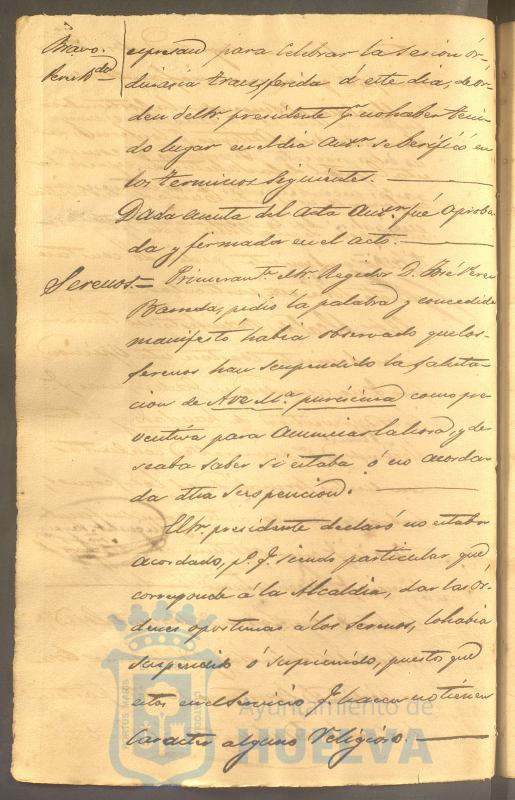 Bravo.
Perez B.da
espresan para celebrar la Sesion ór-
dinaria transferida á este dia, de or-
den del Sr. presidente p.r no haber teni-
do lugar en el dia Ant.r se berificó en
los terminos Siguientes.
Dada cuenta del Acta Ant.r fué aproba-
da y firmada en el acto.
Serenos.= Primeram.te el Sr. Regidor D. José Perez
Barreda, pidió la palabra y concedida
manifestó habia observado que los
serenos han suspendido la saluta-
cion de Ave M.a purisima como pre-
ventiva para Anunciar la hora, y de-
seaba saber si estaba ó no acorda-
da dha suspencion.
El Sr. presidente declaró no estaba
acordado, p.o q. siendo particular que
corresponde á la Alcaldia, dar las ór-
denes oportunas á los Serenos, lo habia
suspendido ó suprimido, puesto que
estos en el servicio q. hacen no tienen
Caracter alguno Religioso.
Ayuntamiento de
HUELVA